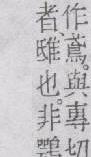 作鳶。與專切
者、雖也。非鶚